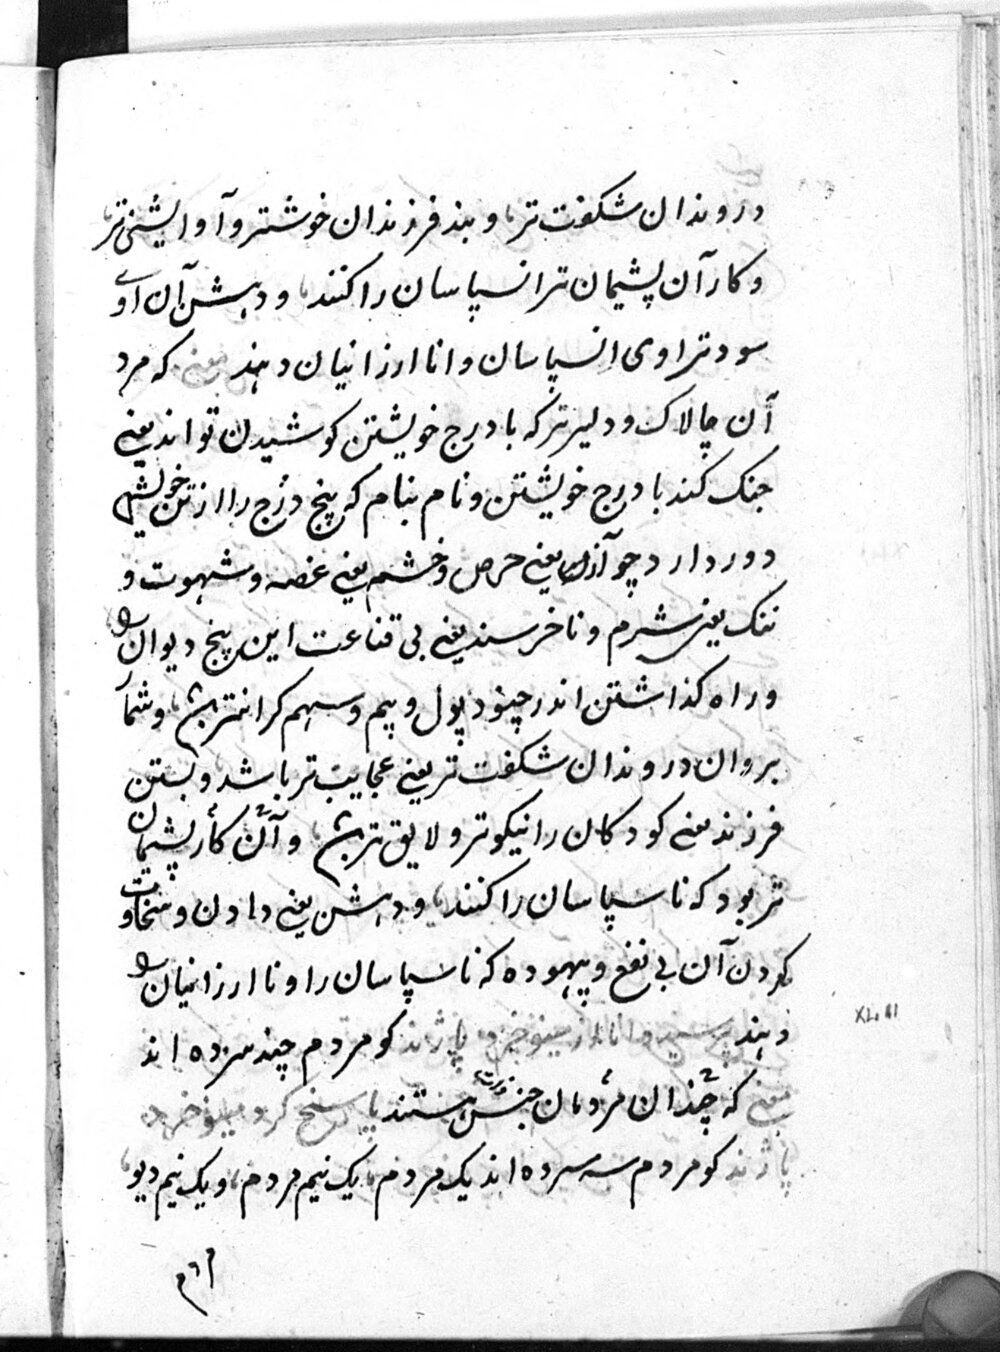 دروندان شکفت تر و بند فرزندان خوشتر و آوایشنی تر
و کار آن پشیمان تر انسپاسان را کنند و دهشن آن اوی
سود تر اوی انسپاسان و انا ارزانیان دهند یعنی که مرد
آن چالاک و دلیرتر که با درج خویشتن کوشیدن تواند یعنے
جنک کند با درج خویشتن و نام بنام که پنج درج را از تن خویش
دور دارد چو آز یعنے حرص و خشم یعنے غصه و شهوت و
ننک یعنی شرم و ناخرسند یعنے بی قناعت این پنج دیوان
و راه کذاشتن اندر چینود پول و بیم و سهم کرانتر و شما
بروان دروندان شکفت تر یعنے عجایب تر باشد و بستن
فرزند یعنے کودکان را نیکوتر و لایق تر و آن کار پشیمان
تر بود که ناسپاسان را کنند و دهشن یعنے دادن و سخاوت
کردن آن بی نفع و بیهوده که ناسپاسان را و نا ارزانیان را
دهند پرسید دانا از مینوخرد پاژند کو مردم چند سرده اند
یعنے که چندان مردمان جنس هستند پاسخ کرد مینوخرد
پاژند کو مردم سه سرده اند یک مردم یک نیم مردم و یک نیم دیو
XLII